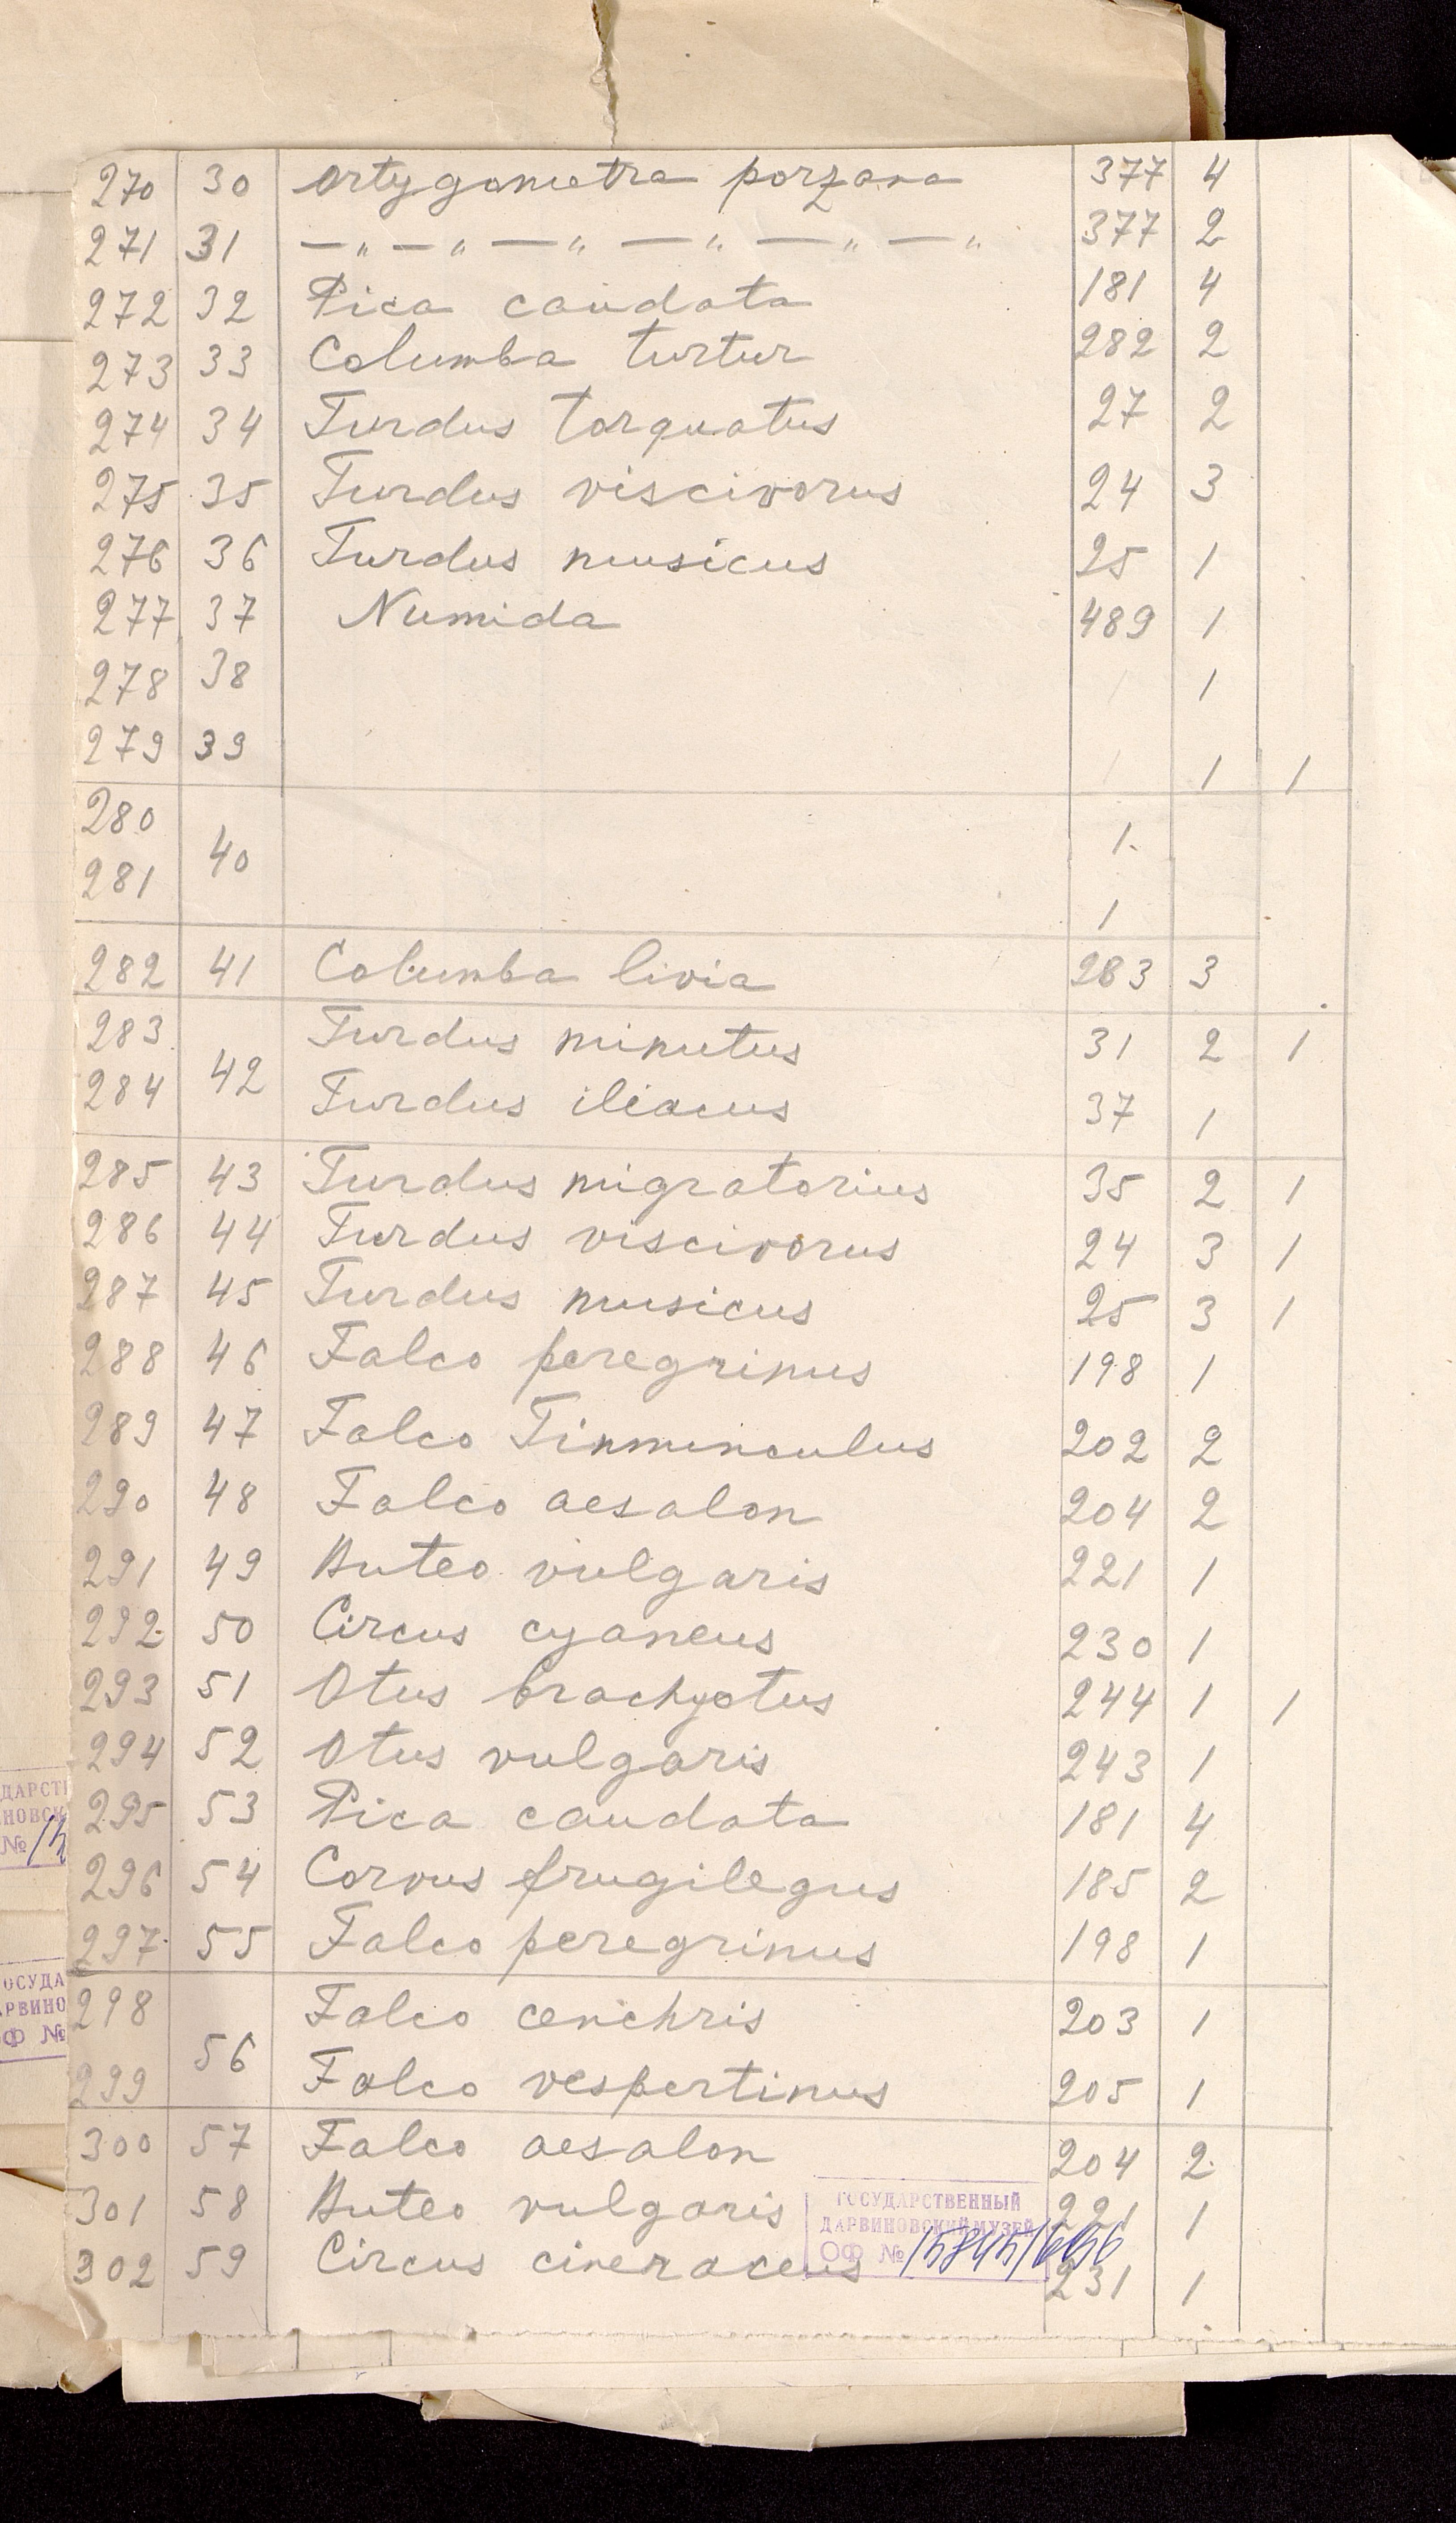 270 30 Ortygometra porzana 377 4
271 31 — „ — „ — „ — „ — „ — „ 377 2
272 32 Pica caudata 181 4
273 33 Columba turtur 282 2
274 34 Turdus torquatus 27 2
275 35 Turdus viscivorus 24 3
276 36 Turdus musicus 25 1
277 37 Numida 489 1
278 38 1 1
279 39 1 1 1
280 1.
40
281 1
282 41 Columba livia 283 3
283 Turdus minutus 31 2 1
42
284 Turdus iliacus 37 1
285 43 Turdus migratorius 35 2 1
286 44 Turdus viscivorus 24 3 1
287 45 Turdus musicus 25 3 1
288 46 Falco peregrinus 198 1
289 47 Falco Tinnunculus 202 2
290 48 Falco aesalon 204 2
291 49 Buteo vulgaris 221 1
292 50 Circus cyaneus 230 1
293 51 Otus brachyotus 244 1 1
294 52 Otus vulgaris 243 1
295 53 Pica caudata 181 4
296 54 Corvus frugilegus 185 2
297 55 Falco peregrinus 198 1
298 Falco cenchris 203 1
56
299 Falco vespertinus 205 1
300 57 Falco aesalon 204 2
301 58 Buteo vulgaris 221 1
302 59 Circus cineraceus 231 1
ГОСУДАРСТВЕННЫЙ
ДАРВИНОВСКИЙ МУЗЕЙ
ОФ №